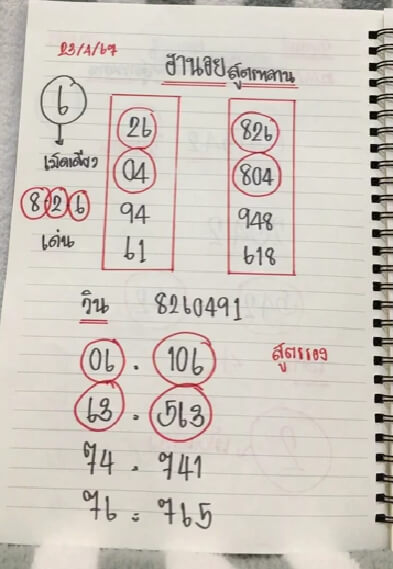 23/4/67
ฮานอย สูตรหลาน
6
เม็ดเดียว
826
เด่น
26
04
94
61
826
804
948
618
วิน 8260491
สูตรรอง
06 . 106
63 . 563
74 . 741
76 = 765